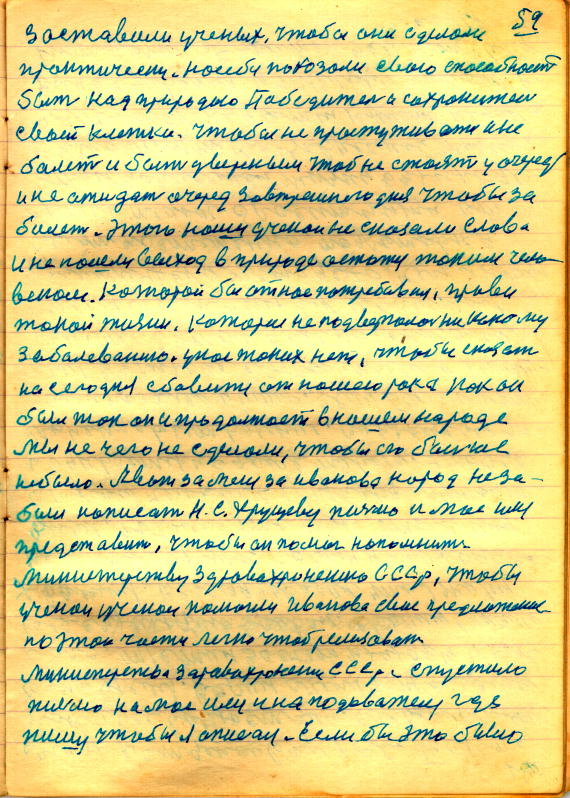 59
заставили ученых, чтобы они сделали
практически. на себе показали свою способност
быт над природою Победители и сохранители
своей клетки. Чтобы не простуживатися и не
болет и быт уверенным чтоб не стоят у очеред
и не ожидат очеред завтрешнего дня чтобы за
болет. Этого наши ученаи не сказали слова
и не нашли выход в природе остатся таким чело
веком. Которой бы от нас потребавал, правел
такой жизни. Которые не подвергалася никакому
заболеванию. у нас таких нет, чтобы сказат
на сегодня сбавити от нашего рока как он
был так он и продолжает в нашем народе
мы не чего не сделали, чтобы его больше
небыло. А вот за меня за иванова народ не за-
были написат Н.С. Хрущеву письмо и мое имя
представит, чтобы он помог напомнить
министерству здравахронению СССР, чтобы
ученаи ученаи помогли иванова свое предложение
по этой части легко чтоб реализоват
министерства здравахронени СССР. спустило
письмо на мое имя и на подователя где
пишу чтобы я описал. Если бы это было